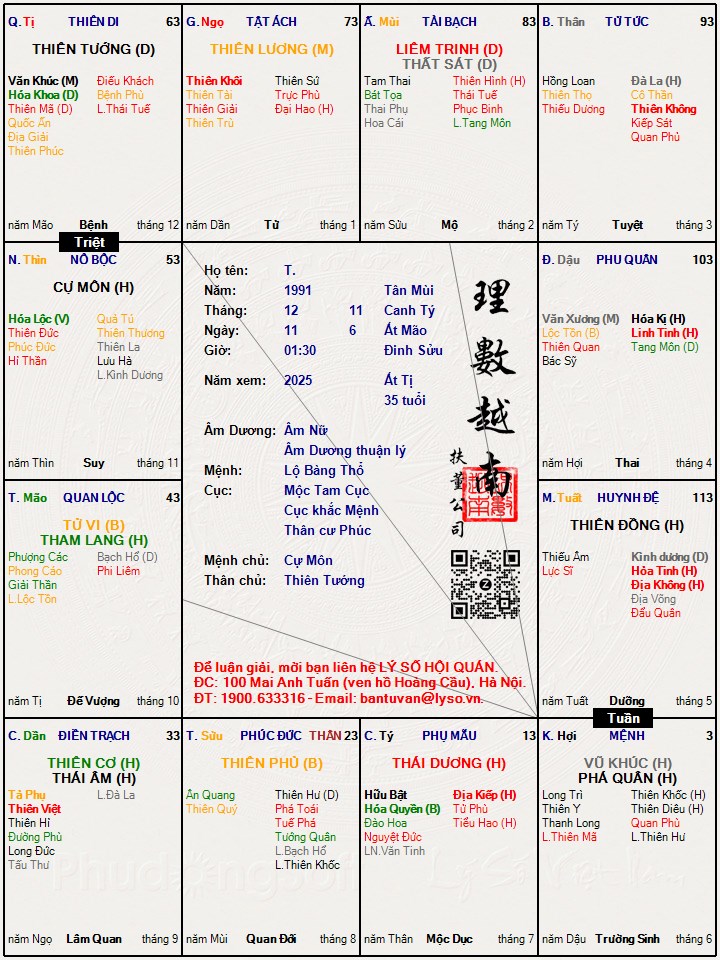 Q. Tị THIÊN DI 63
THIÊN TƯỚNG (D)
Văn Khúc (M) Điếu Khách
Hóa Khoa (D) Bệnh Phù
Thiên Mã (D) L.Thái Tuế
Quốc Ấn
Địa Giải
Thiên Phúc
năm Mão Bệnh tháng 12
G. Ngọ TẬT ÁCH 73
THIÊN LƯƠNG (M)
Thiên Khôi Thiên Sứ
Thiên Tài Trực Phù
Thiên Giải Đại Hao (H)
Thiên Trù
năm Dần Tử tháng 1
Ấ. Mùi TÀI BẠCH 83
LIÊM TRINH (D)
THẤT SÁT (D)
Tam Thai Thiên Hình (H)
Bát Tọa Thái Tuế
Thai Phụ Phục Binh
Hoa Cái L.Tang Môn
năm Sửu Mộ tháng 2
B. Thân TỬ TỨC 93
Hồng Loan Đà La (H)
Thiên Thọ Cô Thần
Thiếu Dương Thiên Không
Kiếp Sát
Quan Phủ
năm Tý Tuyệt tháng 3
Triệt
N. Thìn NÔ BỘC 53
CỰ MÔN (H)
Hóa Lộc (V) Quả Tú
Thiên Đức Thiên Thương
Phúc Đức Thiên La
Hỉ Thần Lưu Hà
L.Kình Dương
năm Thìn Suy tháng 11
Họ tên: T.
Năm: 1991 Tân Mùi
Tháng: 12 11 Canh Tý
Ngày: 11 6 Ất Mão
Giờ: 01:30 Đinh Sửu
Năm xem: 2025 Ất Tị
35 tuổi
Âm Dương: Âm Nữ
Âm Dương thuận lý
Mệnh: Lộ Bàng Thổ
Cục: Mộc Tam Cục
Cục khắc Mệnh
Thân cư Phúc
Mệnh chủ: Cự Môn
Thân chủ: Thiên Tướng
理數越南
扶董公司
Để luận giải, mời bạn liên hệ LÝ SỐ HỘI QUÁN.
ĐC: 100 Mai Anh Tuấn (ven hồ Hoàng Cầu), Hà Nội.
ĐT: 1900.633316 - Email: bantuvan@lyso.vn.
Đ. Dậu PHU QUÂN 103
Văn Xương (M) Hóa Kị (H)
Lộc Tồn (B) Linh Tinh (H)
Thiên Quan Tang Môn (D)
Bác Sỹ
năm Hợi Thai tháng 4
T. Mão QUAN LỘC 43
TỬ VI (B)
THAM LANG (H)
Phượng Các Bạch Hổ (D)
Phong Cáo Phi Liêm
Giải Thần
L.Lộc Tồn
năm Tị Đế Vượng tháng 10
M. Tuất HUYNH ĐỆ 113
THIÊN ĐỒNG (H)
Thiếu Âm Kình dương (D)
Lực Sĩ Hỏa Tinh (H)
Địa Không (H)
Địa Võng
Đẩu Quân
năm Tuất Dưỡng tháng 5
Tuần
C. Dần ĐIỀN TRẠCH 33
THIÊN CƠ (H)
THÁI ÂM (H)
Tả Phụ L.Đà La
Thiên Việt
Thiên Hỉ
Đường Phù
Long Đức
Tấu Thư
năm Ngọ Lâm Quan tháng 9
T. Sửu PHÚC ĐỨC THÂN 23
THIÊN PHỦ (B)
Ân Quang Thiên Hư (D)
Thiên Quý Phá Toái
Tuế Phá
Tướng Quân
L.Bạch Hổ
L.Thiên Khốc
năm Mùi Quan Đới tháng 8
C. Tý PHỤ MẪU 13
THÁI DƯƠNG (H)
Hữu Bật Địa Kiếp (H)
Hóa Quyền (B) Tử Phù
Đào Hoa Tiểu Hao (H)
Nguyệt Đức
LN.Văn Tinh
năm Thân Mộc Dục tháng 7
K. Hợi MỆNH 3
VŨ KHÚC (H)
PHÁ QUÂN (H)
Long Trì Thiên Khốc (H)
Thiên Y Thiên Diêu (H)
Thanh Long Quan Phù
L.Thiên Mã L.Thiên Hư
năm Dậu Trường Sinh tháng 6